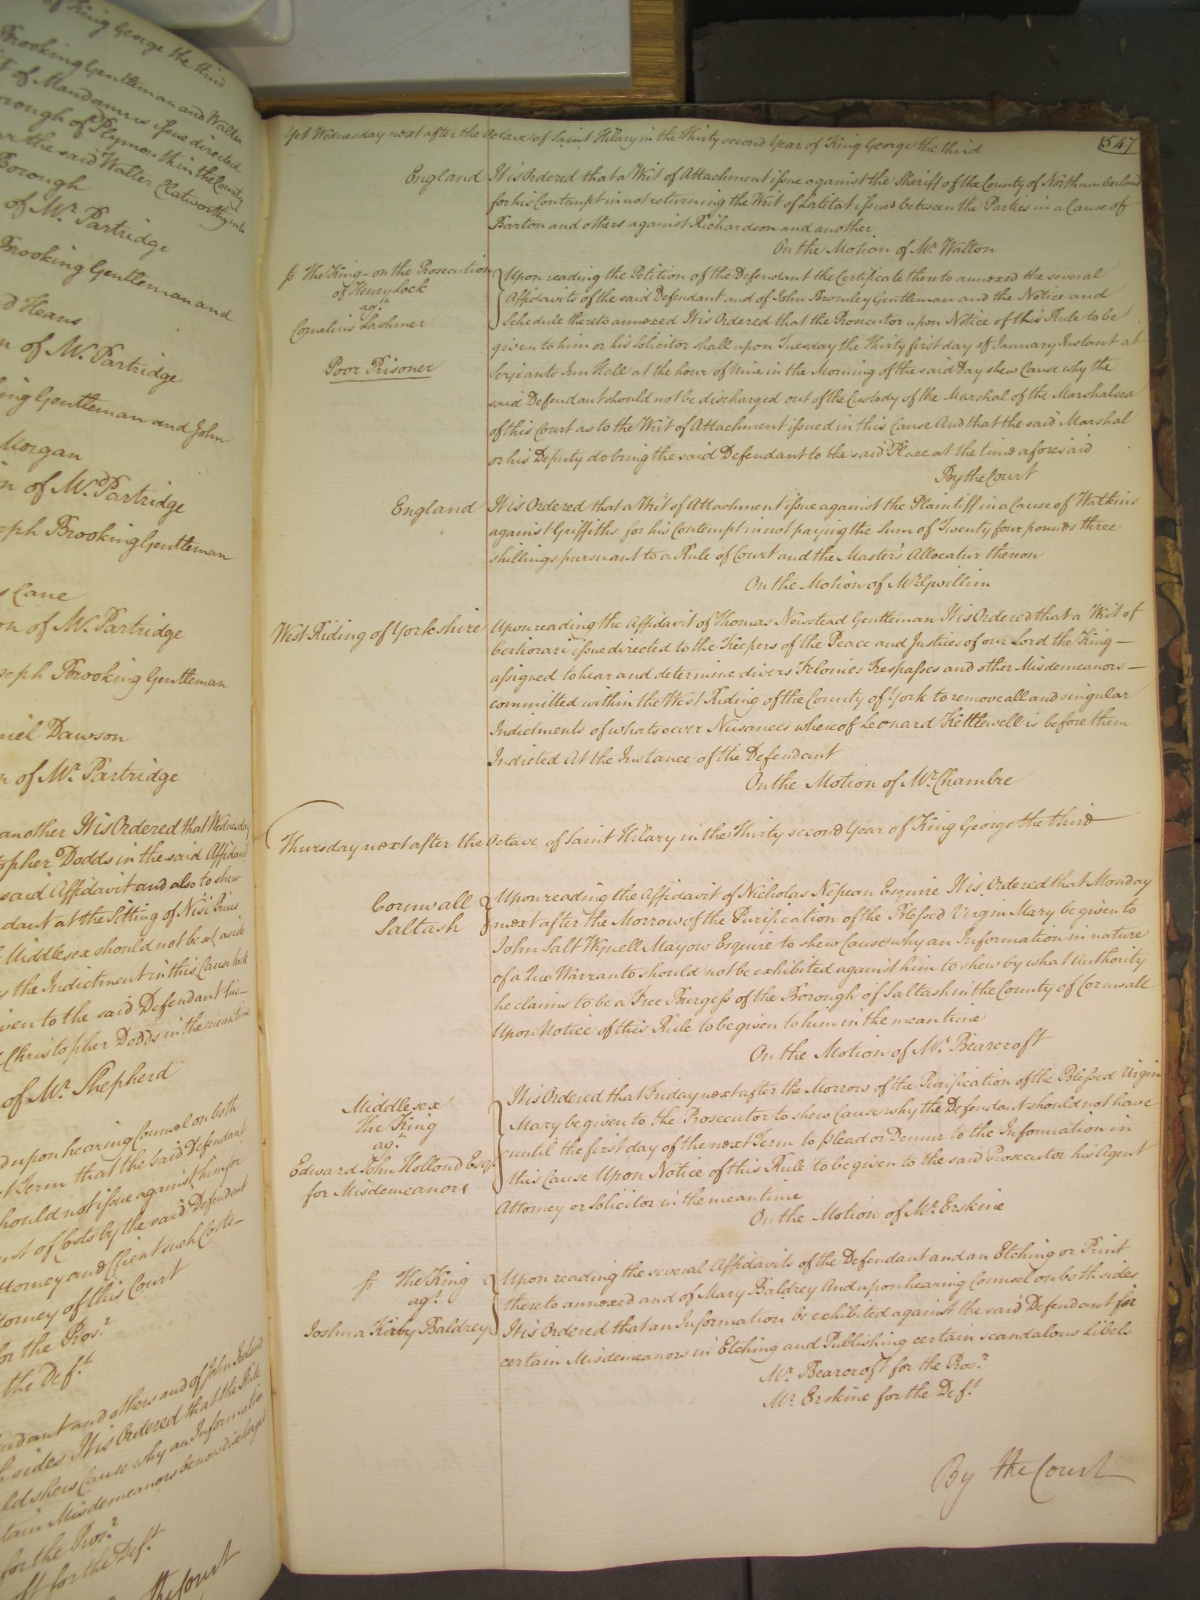 of King George the third
Brooking Gentleman and Walter
of Mandamus issue directed
Borough of Plymouth in the County
the said Walter Clatworthy
Borough
of Mr. Partridge
Brooking Gentleman and
Heans
of Mr. Partridge
Gentleman and John
Morgan
of Mr. Partridge
Joseph Brooking Gentleman
Lane
on of Mr. Partridge
Joseph Brooking Gentleman
Dawson
of Mr. Partridge
another It is Ordered that Wednesday
Dodds in the said Affidavit
said Affidavit and also to shew
at the Sitting of Nisi Prius
Middlesex should not be set aside
the Indictment in this Cause
given to the said Defendant his
Christopher Dodds in the meantime
of Mr. Shepherd
upon hearing Counsel on both
Term that the said Defendant
should not issue against him for
of Costs by the said Defendant
Attorney and Client such Costs
Attorney of this Court
for the Pros.r
the Def.t
and others and of John
sides It is Ordered that the Rule
shew Cause why an Information
Misdemeanors be now discharged
for the Pros.r
for the Def.t
the Court
547
Yet Wednesday next after the Octave of Saint Hilary in the Thirty second Year of King George the third
England It is Ordered that a Writ of Attachment issue against the Sheriff of the County of Northumberland
for his Contempt in not returning the Writ of Latitat issued between the Parties in a Cause of
Barton and others against Richardson and another
On the Motion of Mr. Walton
The King on the Prosecution
of Henry Lock
ag.t
Cornelius Lashmer
Poor Prisoner
Upon reading the Petition of the Defendant the Certificate thereto annexed the several
Affidavits of the said Defendant and of John Bromley Gentleman and the Notice and
Schedule thereto annexed It is Ordered that the Prosecutor upon Notice of this Rule to be
given to him or his Solicitor shall upon Tuesday the Thirty first day of January Instant at
Serjeants Inn Hall at the hour of Nine in the Morning of the said Day shew Cause why the
said Defendant should not be discharged out of the Custody of the Marshal of the Marshalsea
of this Court as to the Writ of Attachment issued in this Cause And that the said Marshal
or his Deputy do bring the said Defendant to the said Place at the time aforesaid
By the Court
England It is Ordered that a Writ of Attachment issue against the Plaintiff in a Cause of Watkins
against Griffiths for his Contempt in not paying the Sum of Twenty four pounds three
shillings pursuant to a Rule of Court and the Master's Allocatur thereon
On the Motion of Mr. Gwillim
West Riding of Yorkshire Upon reading the Affidavit of Thomas Newstead Gentleman It is Ordered that a Writ of
Certiorari issue directed to the Keepers of the Peace and Justices of our Lord the King
assigned to hear and determine divers Felonies Trespasses and other Misdemeanors
committed within the West Riding of the County of York to remove all and singular
Indictments of whatsoever Nusances whereof Leonard Kettlewell is before them
Indicted At the Instance of the Defendant
On the Motion of Mr. Chambre
Thursday next after the Octave of Saint Hilary in the Thirty second Year of King George the third
Cornwall
Saltash
Upon reading the Affidavit of Nicholas Nepean Esquire It is Ordered that Monday
next after the Morrow of the Purification of the Blessed Virgin Mary be given to
John Salt Wynell Mayow Esquire to shew Cause why an Information in nature
of a Quo Warranto should not be exhibited against him to shew by what Authority
he claims to be a Free Burgess of the Borough of Saltash in the County of Cornwall
Upon Notice of this Rule to be given to him in the mean time
On the Motion of Mr. Bearcroft
Middlesex
The King
ag.t
Edward John Hollond Esq.r
for Misdemeanors
It is Ordered that Friday next after the Morrow of the Purification of the Blessed Virgin
Mary be given to the Prosecutor to shew Cause why the Defendant should not have
until the first day of the next Term to plead or Demur to the Information in
this Cause Upon Notice of this Rule to be given to the said Prosecutor his Agent
Attorney or Solicitor in the mean time
On the Motion of Mr. Erskine
The King
ag.t
Joshua Kirby Baldrey
Upon reading the several Affidavits of the Defendant and an Etching or Print
thereto annexed and of Mary Baldrey And upon hearing Counsel on both sides
It is Ordered that an Information be exhibited against the said Defendant for
certain Misdemeanors in Etching and Publishing certain scandalous Libels
Mr. Bearcroft for the Pros.r
Mr. Erskine for the Def.t
By the Court